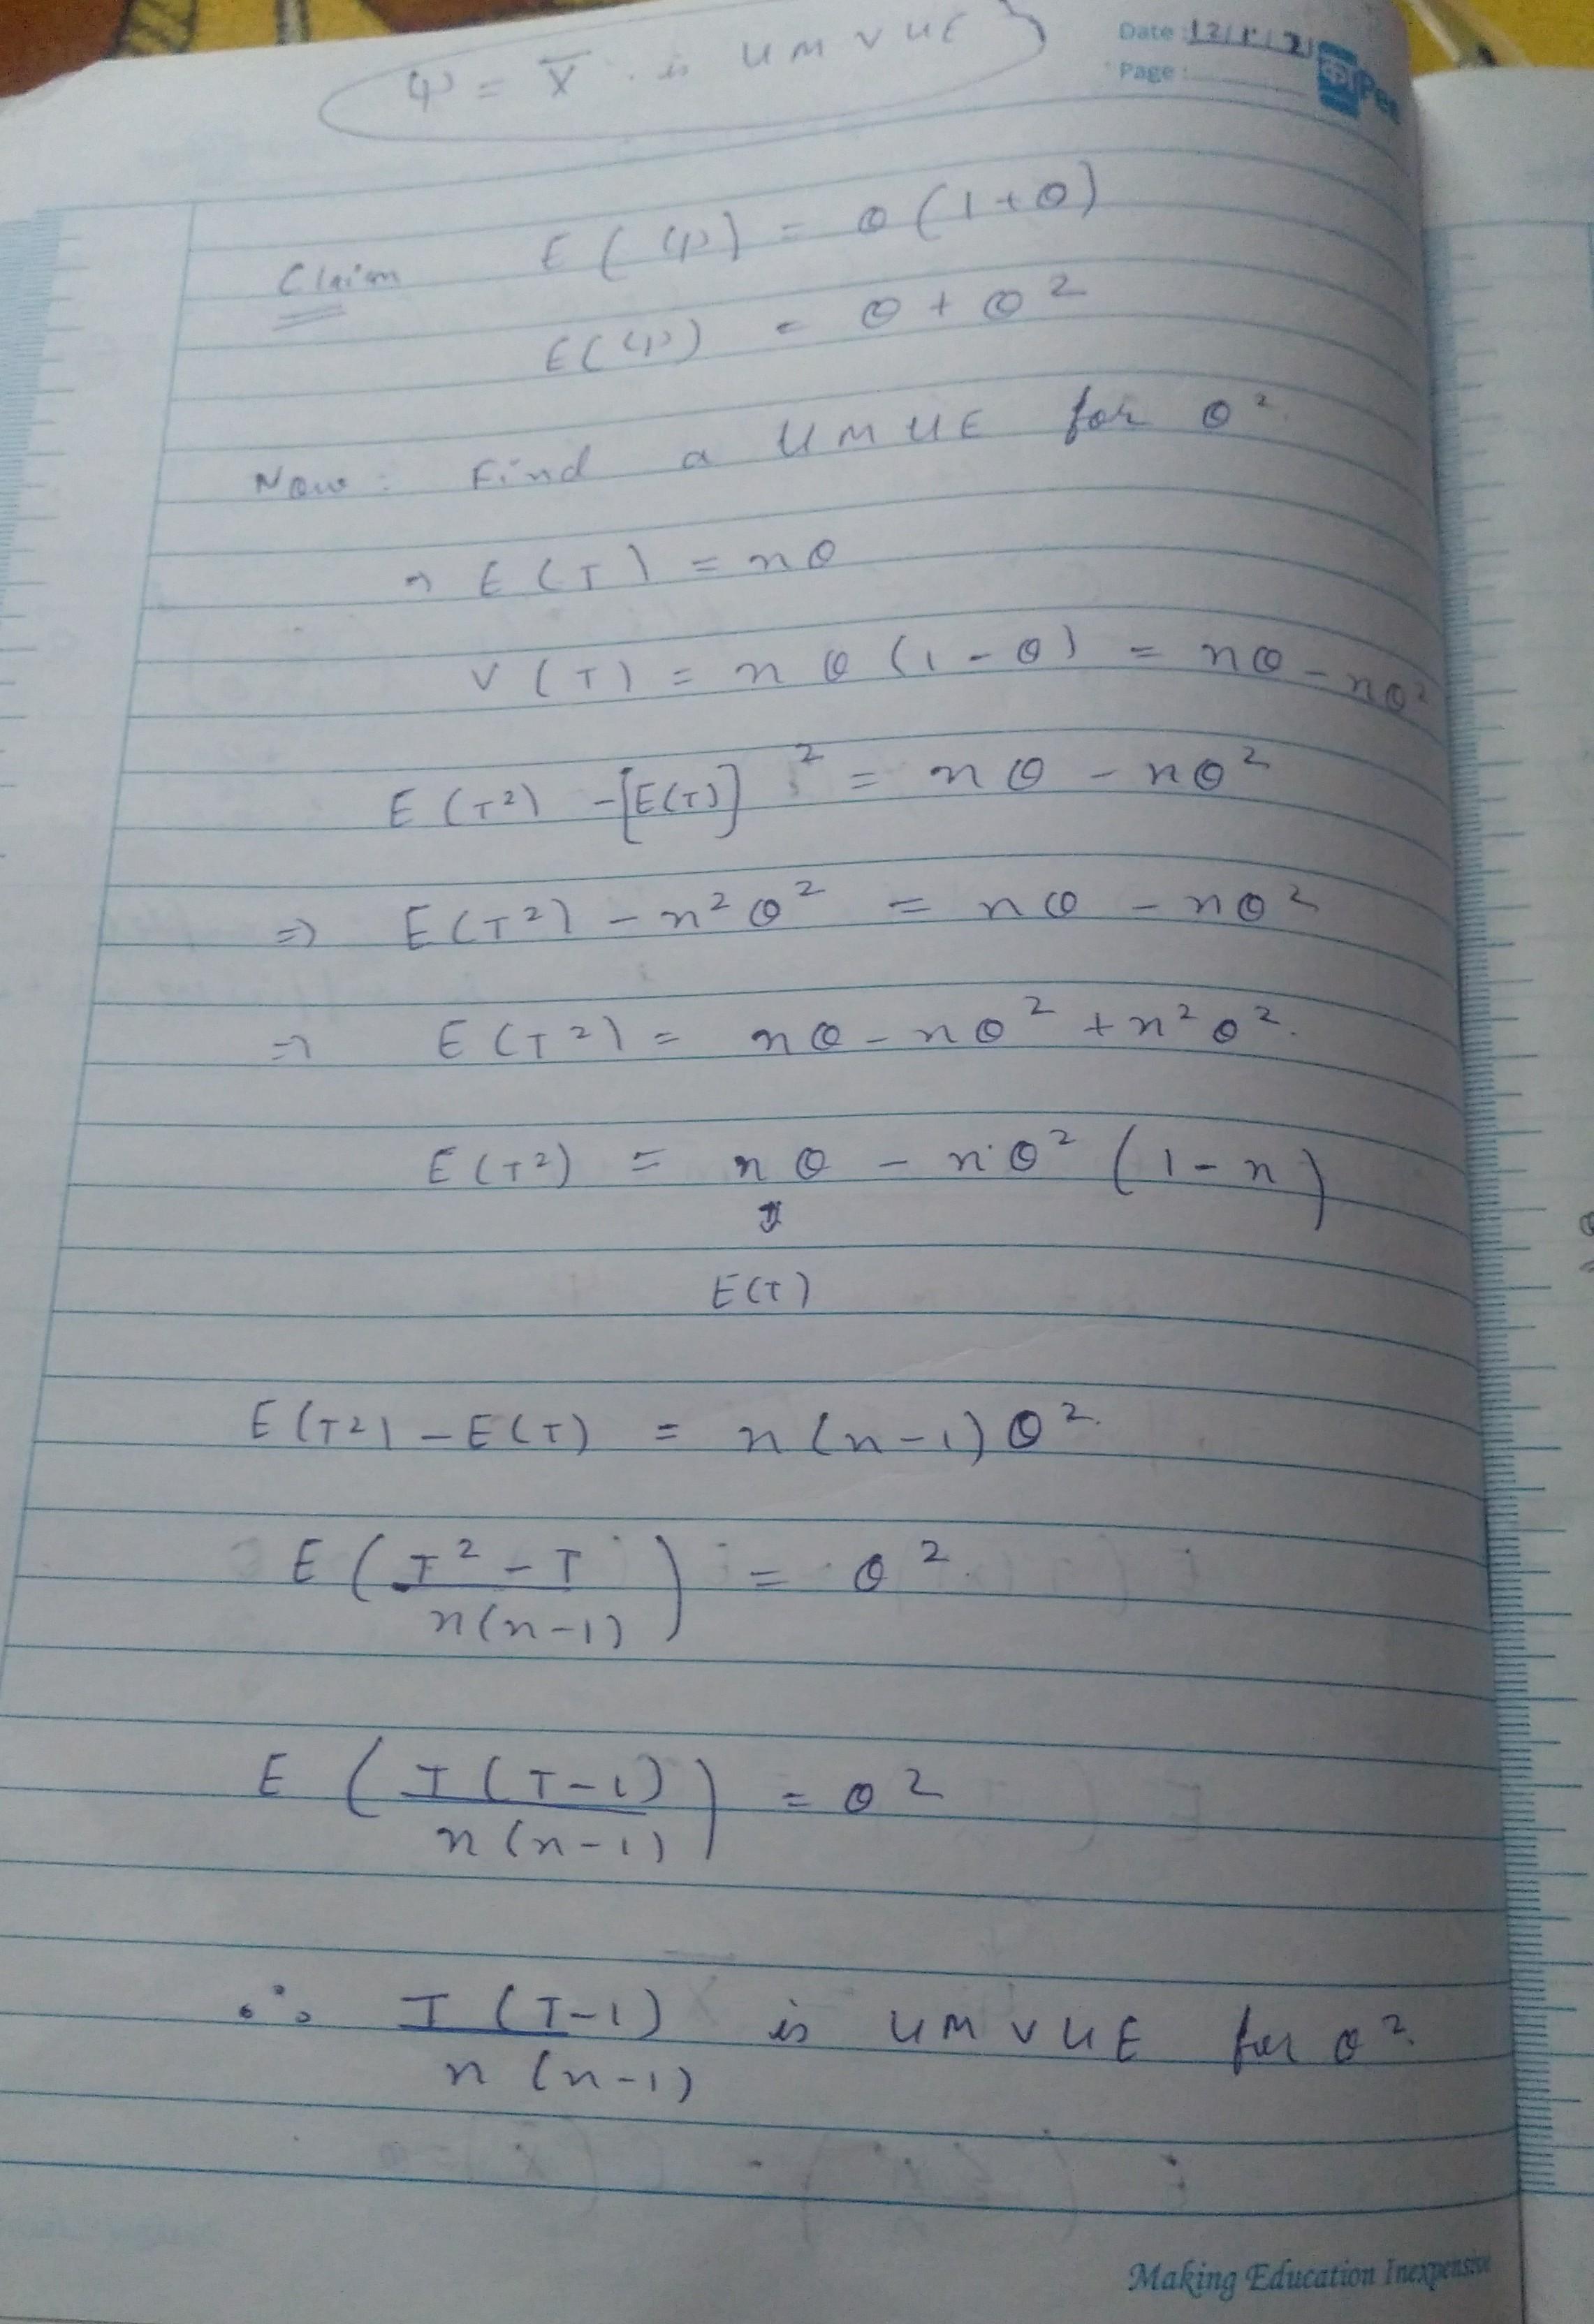 Date: 12/1/21
Page:
ψ = X̄ is UMVUE
Claim E(ψ) = θ(1+θ)
E(ψ) = θ + θ²
Now: Find a UMUE for θ²
⇒ E(T) = nθ
V(T) = nθ(1-θ) = nθ - nθ²
E(T²) - [E(T)]² = nθ - nθ²
⇒ E(T²) - n²θ² = nθ - nθ²
⇒ E(T²) = nθ - nθ² + n²θ².
E(T²) = nθ - nθ²(1-n)
E(T)
E(T²) - E(T) = n(n-1)θ².
E(T² - T / n(n-1)) = θ².
E(T(T-1) / n(n-1)) = θ²
∴ T(T-1) / n(n-1) is UMVUE for θ².
Making Education Inexpensive